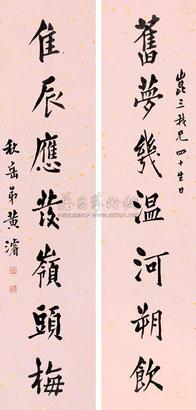 崑三我兄四十生日
舊夢幾温河朔飲
佳辰應發嶺頭梅
秋岳弟黃濬